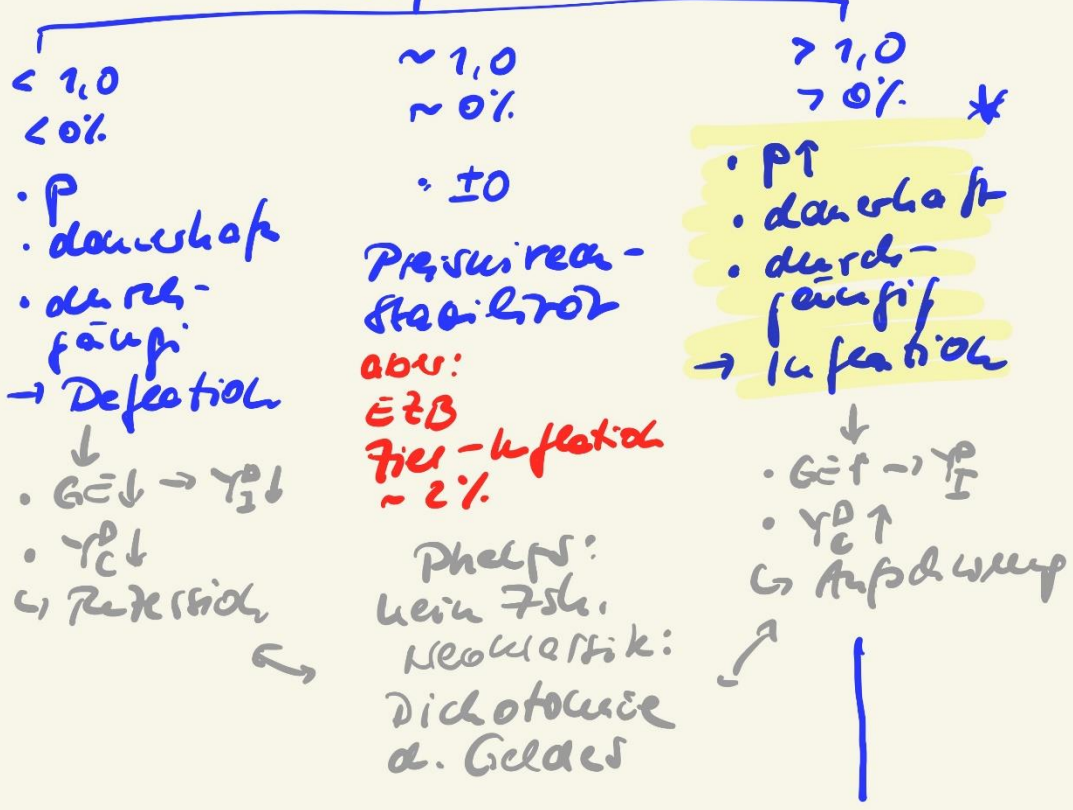 < 1,0
< 0%
· P
· dauerhaft
· durch-
gängi
→ Deflation
↓
· GE↓ → Y_I^D↓
· Y_C^D↓
↳ Rezession
~ 1,0
~ 0%
· ±0
Preisniveau-
stabilität
aber:
EZB
Ziel-Inflation
~ 2%
Phelps:
kein Zsh.
Neoklassik:
Dichotomie
d. Geldes
> 1,0
> 0% *
· P↑
· dauerhaft
· durch-
gängig
→ Inflation
↓
· GE↑ → Y_I^D
· Y_C^D ↑
↳ Aufschwung